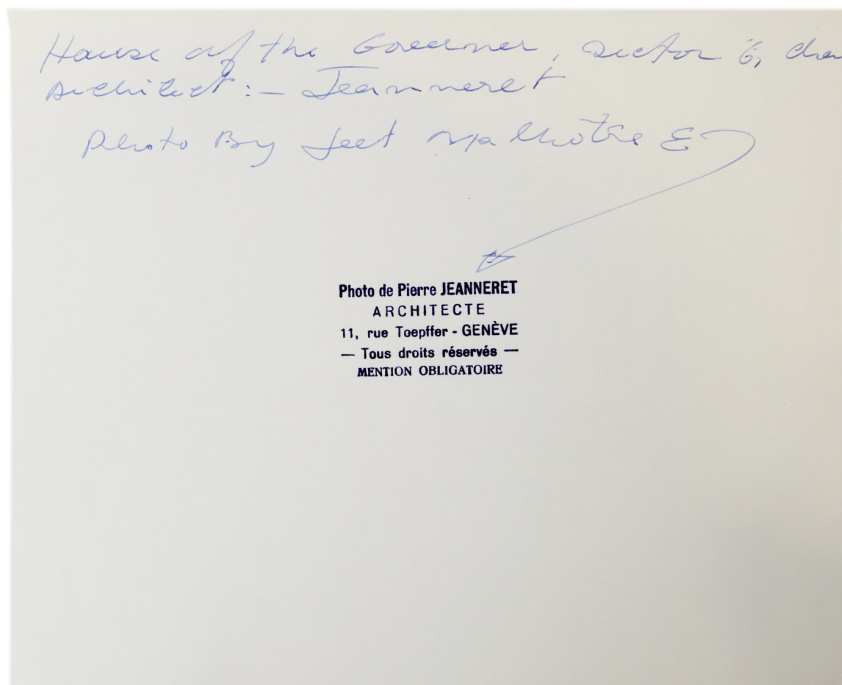 House of the Goeerner, sector 6, cha
Architect:- Jeanneret
Photo By Jeet Malhotra &
Photo de Pierre JEANNERET
ARCHITECTE
11, rue Toepffer - GENÈVE
— Tous droits réservés —
MENTION OBLIGATOIRE